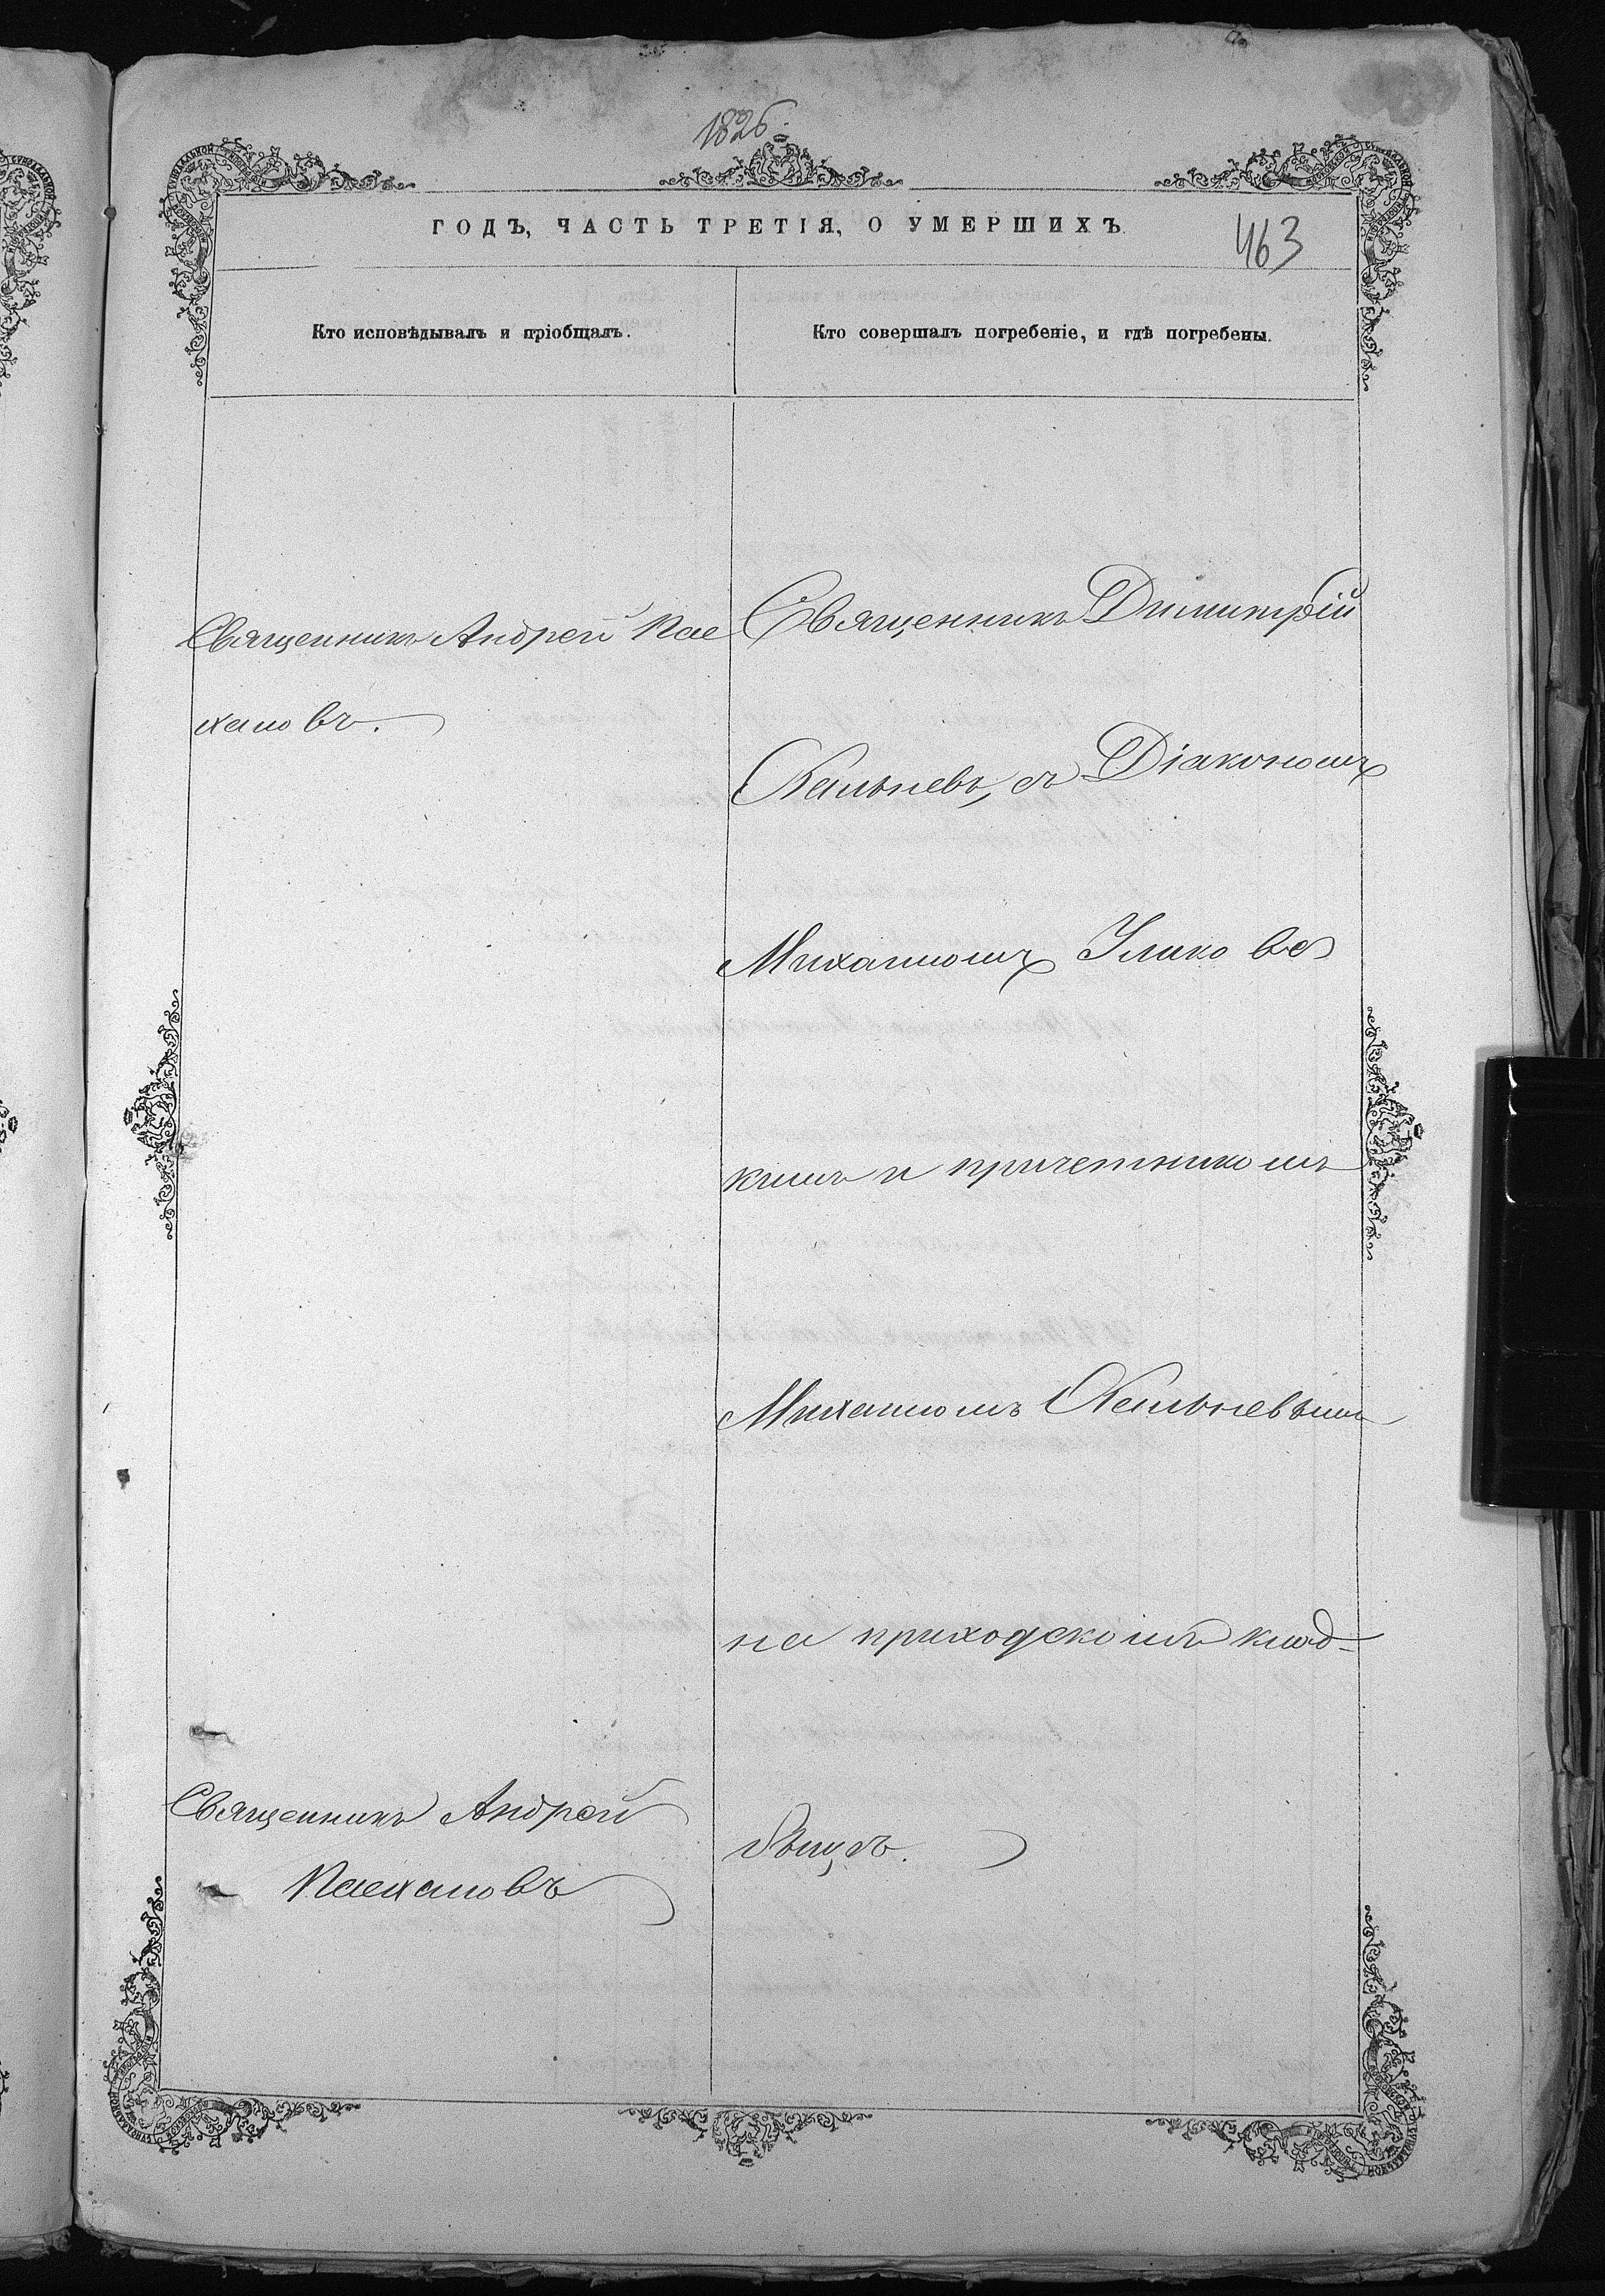 1826.
ГОДЪ, ЧАСТЬ ТРЕТІЯ, О УМЕРШИХЪ.
463
Кто исповѣдывалъ и пріобщалъ.
Кто совершалъ погребеніе, и гдѣ погребены.
Священникъ Андрей
Священникъ Димитрій
съ Діакономъ
Михаиломъ
кимъ и причетникомъ
Михаиломъ
на приходскомъ клад-
бищѣ.
Священникъ Андрей